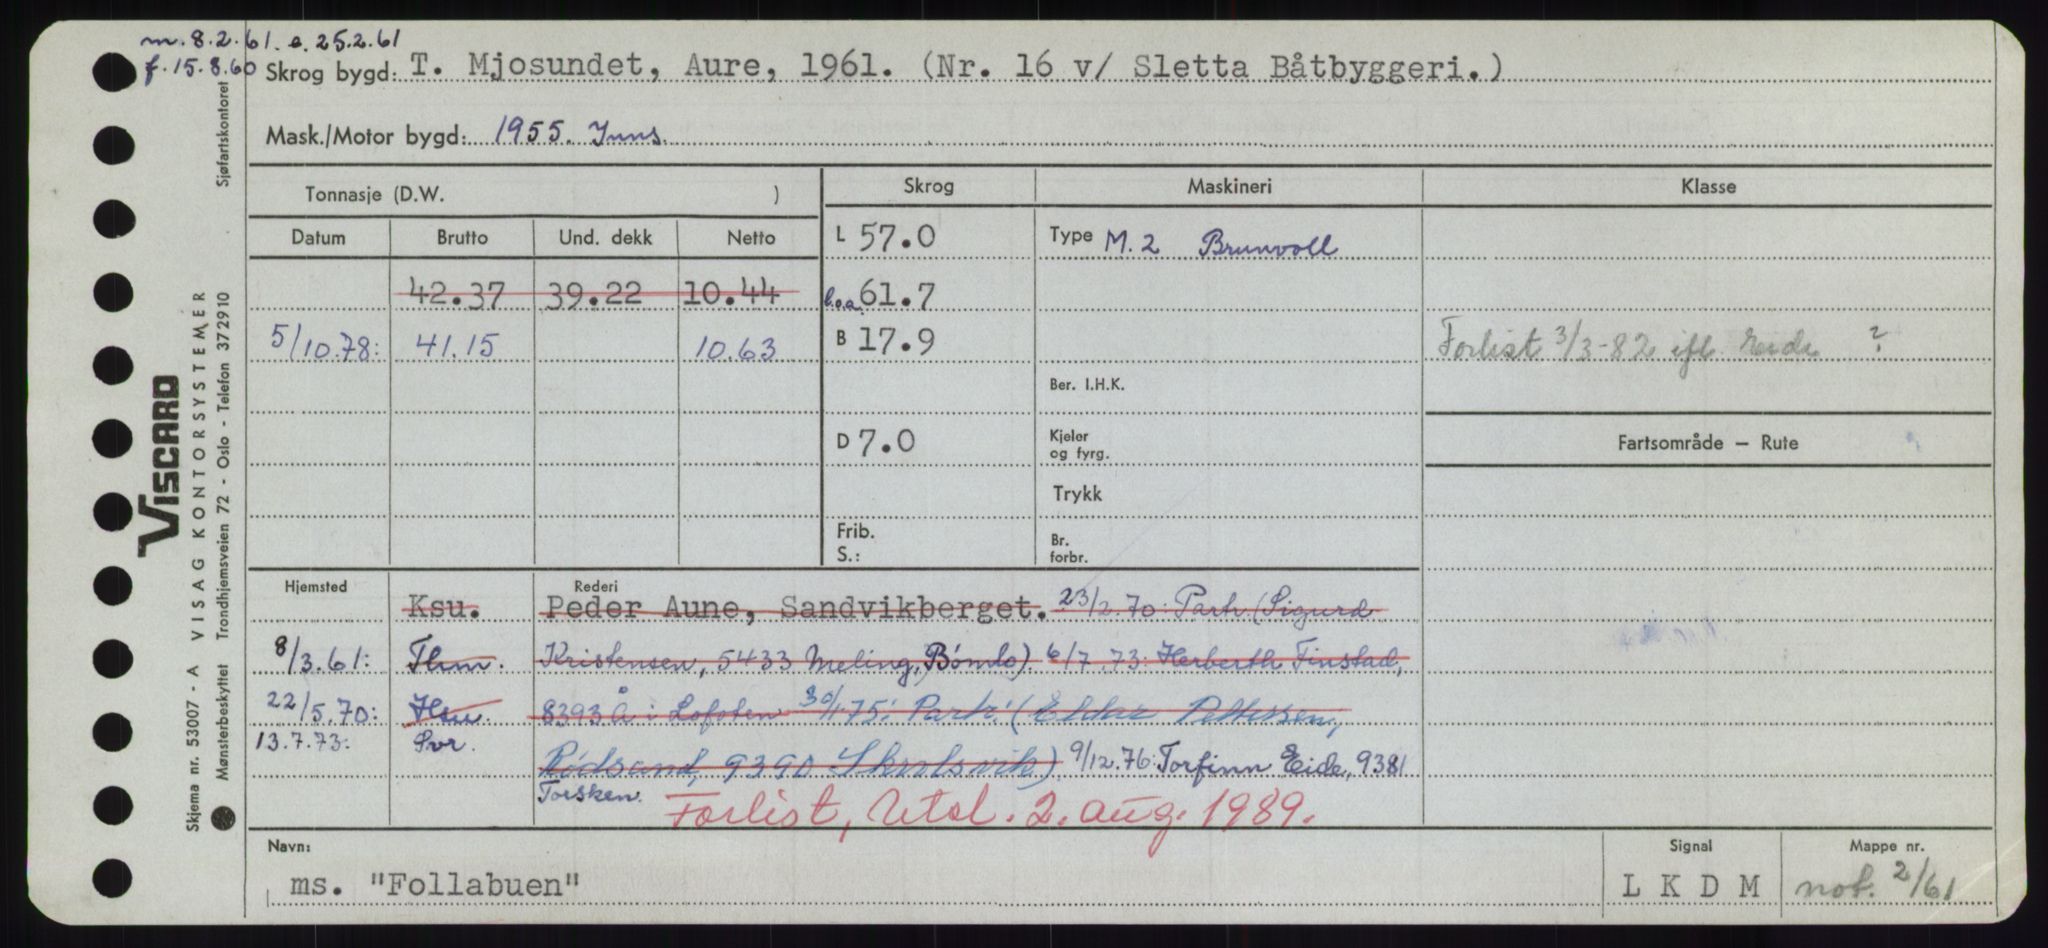 m. 8.2.61. e. 25.2.61
f. 15.8.60
Skrog bygd: T. Mjosundet, Aure, 1961. (Nr. 16 v/ Sletta Båtbyggeri.)
Mask./Motor bygd: 1955. Inns.
Tonnasje (D.W. )
Skrog Maskineri Klasse
Datum Brutto Und. dekk Netto
L 57.0 Type M.2 Brunvoll
42.37 39.22 10.44 l.o.a. 61.7
5/10.78: 41.15 10.63 B 17.9 Forlist 3/3-82 ifl. Eide ?
Ber. I.H.K.
D 7.0 Kjeler og fyrg. Fartsområde – Rute
Trykk
Frib. S.: Br. forbr.
Hjemsted Rederi
Ksu. Peder Aune, Sandvikberget. 23/2.70: Partr. (Sigurd
8/3.61: Thm. Kristensen, 5433 Meling, Bømlo). 6/7.73: Herberth Finstad,
22/5.70: Hsu. 8393 Å i Lofoten 30/1 75: Partr. (Eldar Pettersen,
13.7.73: Svr. Rødsand, 9390 Skrolsvik) 9/12.76: Torfinn Eide, 9381
Torsken. Forlist, Utsl. 2. aug. 1989.
Navn: Signal Mappe nr.
ms. "Follabuen" L K D M not. 2/61
Skjema nr. 53007 - A VISAG KONTORSYSTEMER
Mønsterbeskyttet Trondhjemsveien 72 - Oslo - Telefon 372910
Sjøfartskontoret
VISCARD